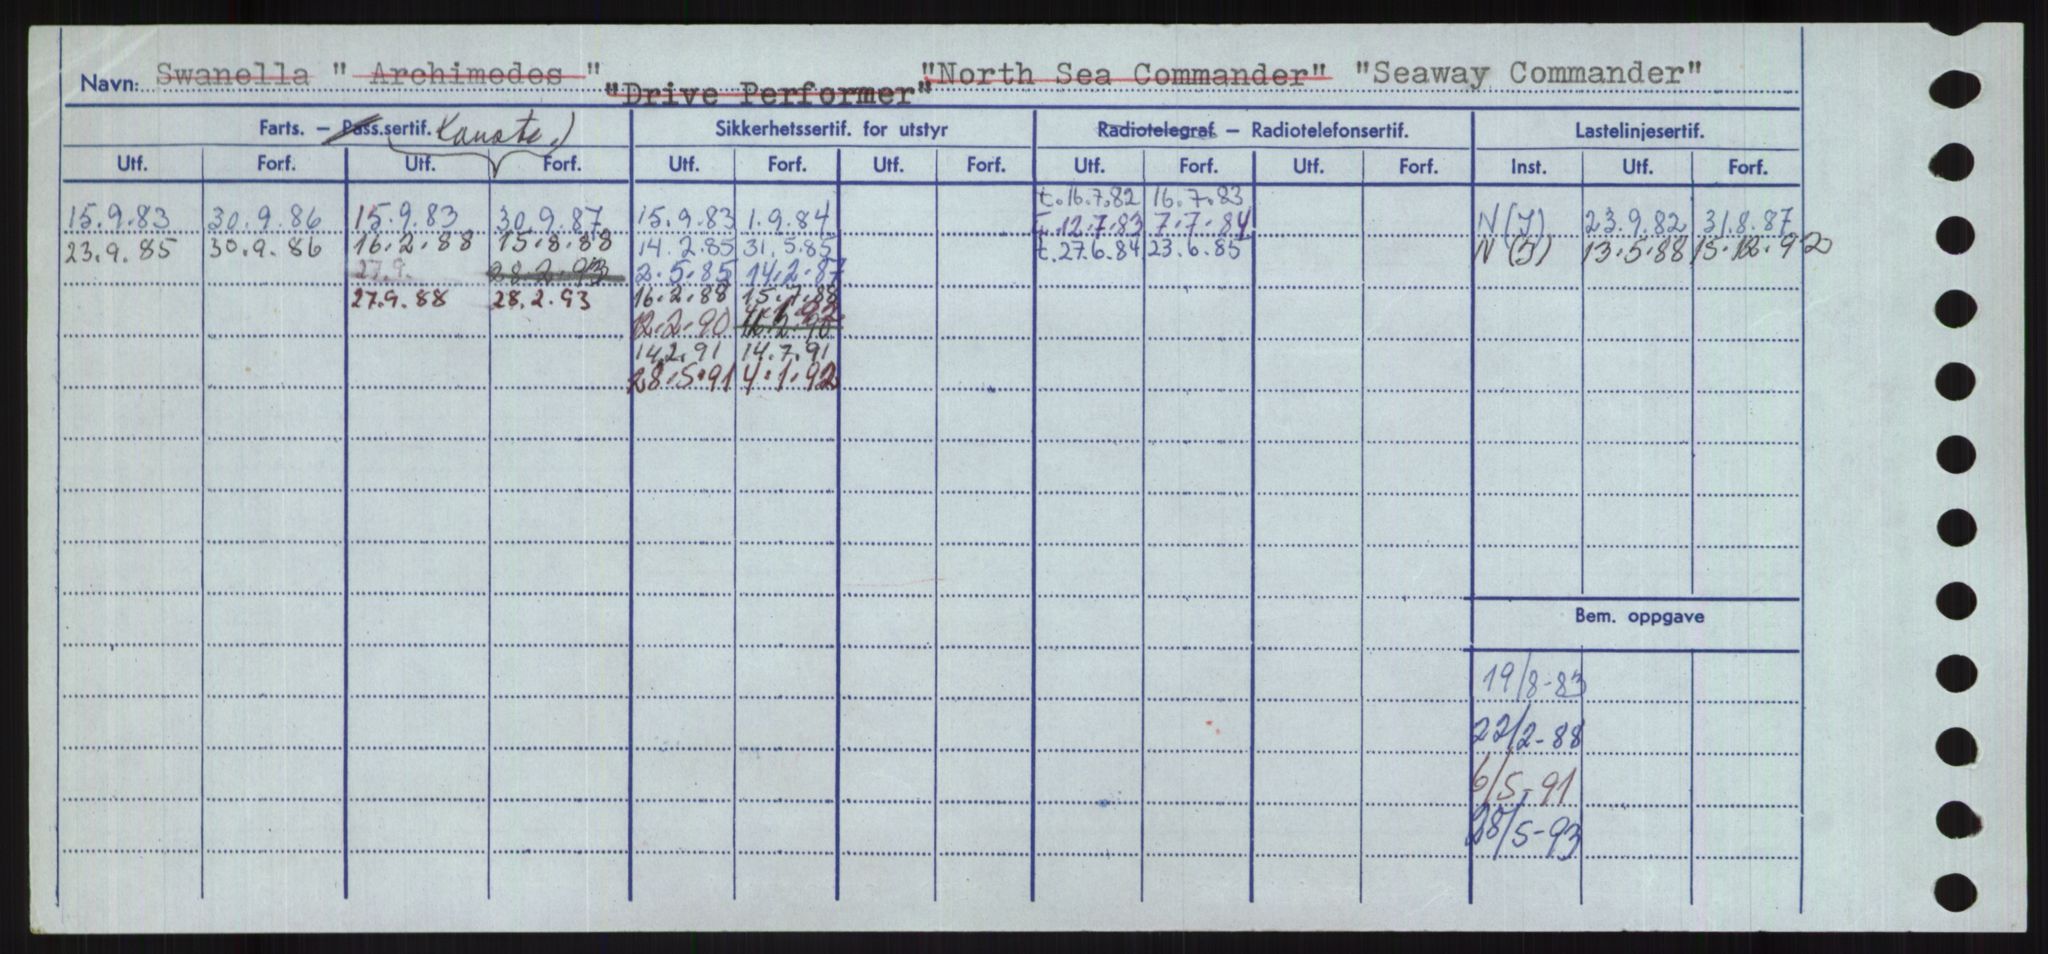 Navn: Swanella " Archimedes " "North Sea Commander" "Seaway Commander"
"Drive Performer"
Farts. — Pass.sertif. Sikkerhetssertif. for utstyr Radiotelegraf — Radiotelefonsertif. Lastelinjesertif.
Utf. Forf. Utf. Forf. Utf. Forf. Utf. Forf. Utf. Forf. Utf. Forf. Inst. Utf. Forf.
t.16.7.82 16.7.83
15.9.83 30.9.86 15.9.83 30.9.87 15.9.83 1.9.84 t.12.7.83 7.7.84 N(J) 23.9.82 31.8.87
23.9.85 30.9.86 16.2.88 15.8.88 14.2.85 31.5.85 t.27.6.84 23.6.85 N(J) 13.5.88 15.12.92
27.9. 28.2.93 2.5.85 14.2.87
27.9.88 28.2.93 16.2.88 15.7.88
4.1.92
12.2.90 16.2.90
14.2.91 14.7.91
28.5.91 4.1.92
Bem. oppgave
19/8-83
22/2-88
6/5-91
28/5-93